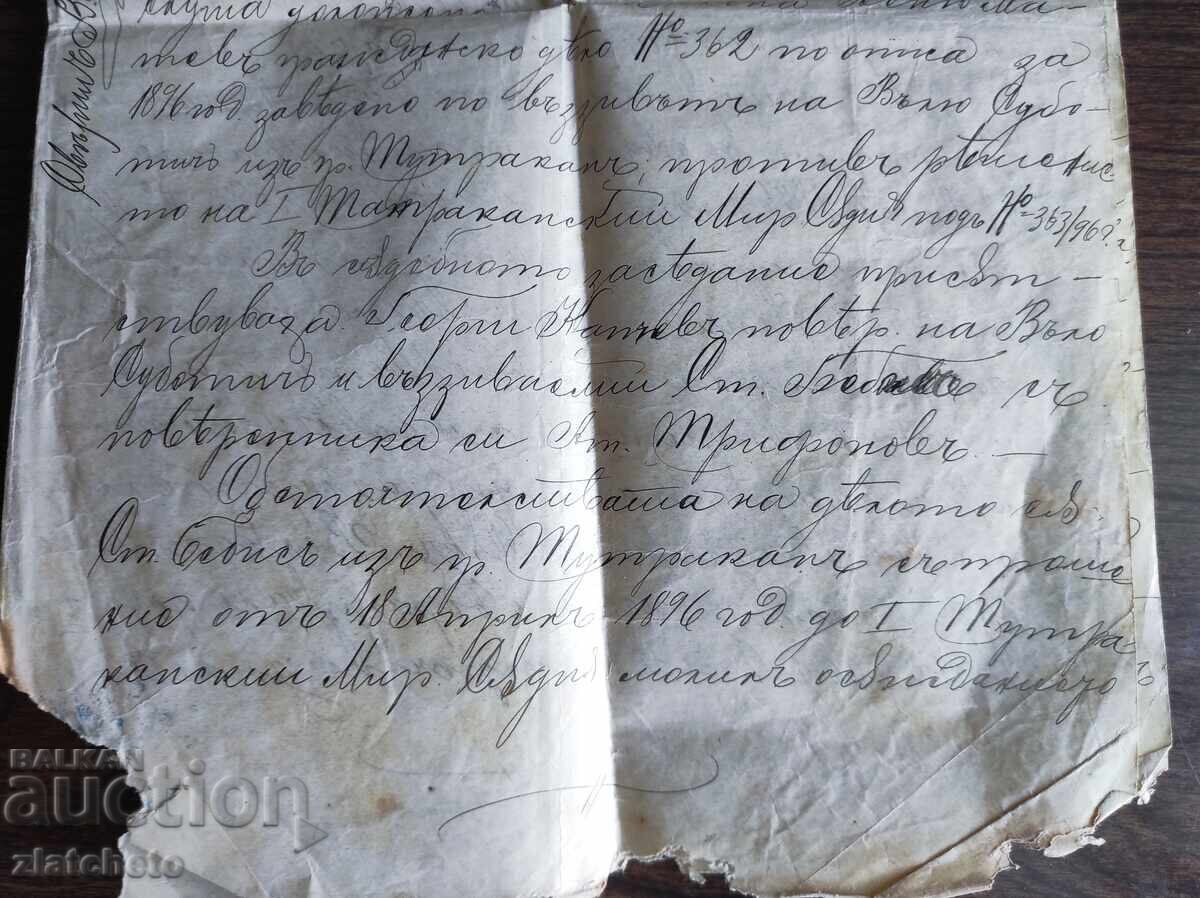 тевъ гражданско дѣло № 362 по описа за
1896 год. заведено по възивътъ на Вълю Субо-
тичъ изъ гр. Тутраканъ, противъ рѣшение-
то на I Татраканский Мир. Сѫдия подъ № 363/96 г.
Въ сѫдебното заседание присѫт-
ствуваха Георги Капчевъ повѣр. на Вълю
Суботичъ и възиваемий Ст. съ
повѣренника си Ат. Трифоновъ. —
Обстоятелствата на дѣлото сѫ:
Ст. Бебисъ изъ гр. Тутраканъ съ проше-
ние отъ 18 Априлъ 1896 год. до I Тутра
канский Мир. Сѫдия молилъ осѫжданието
BALKAN
auction
zlatcheto